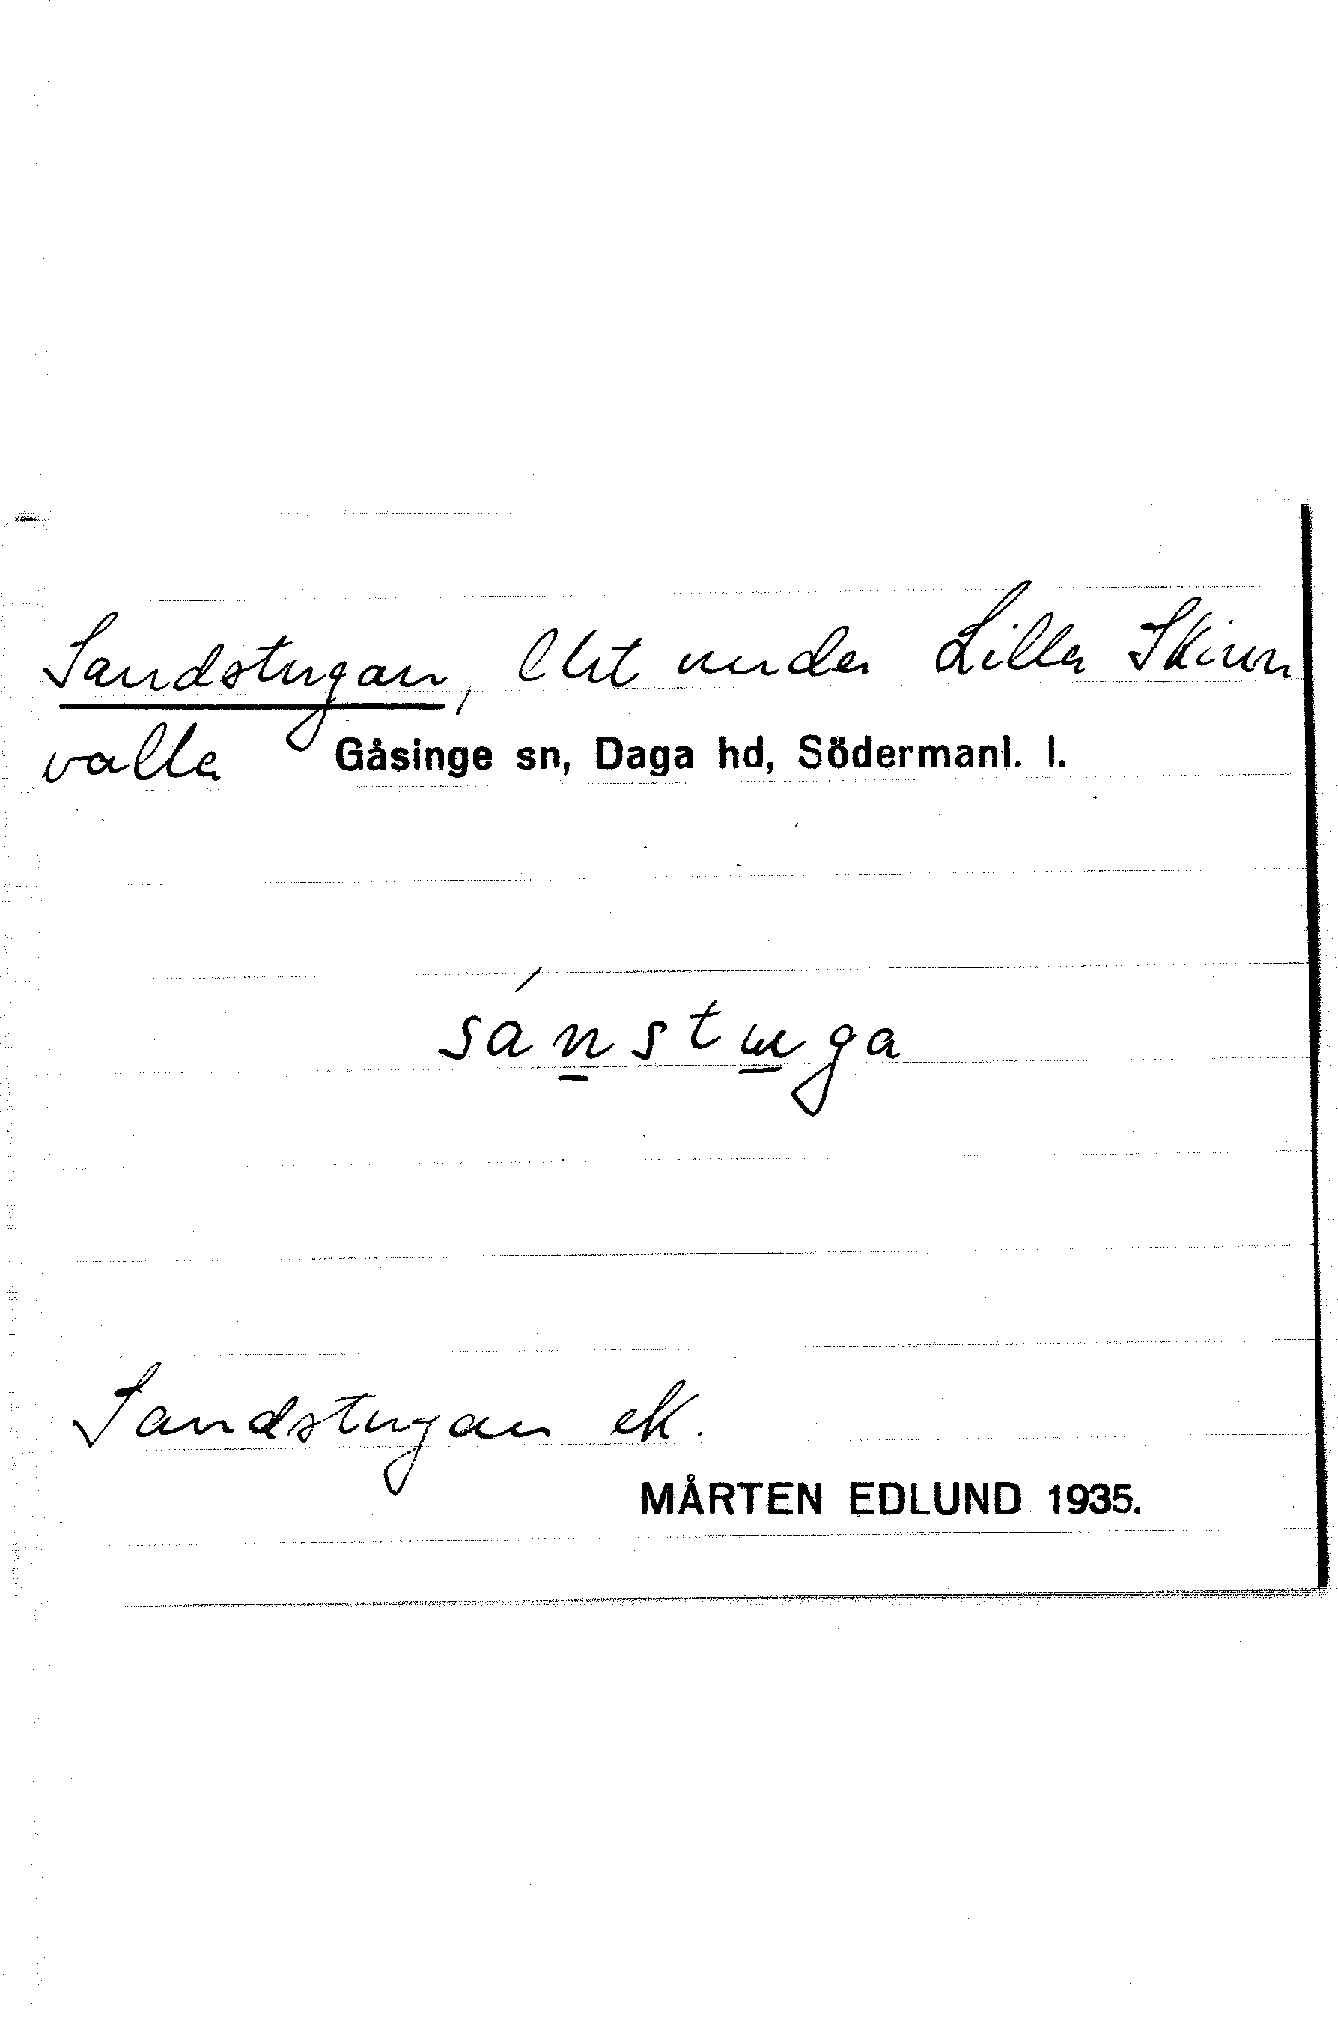 Sandstugan, lht under Lilla Skinn
valla Gåsinge sn, Daga hd, Södermanl. l.
sánstuga
Sandstugan ek.
MÅRTEN EDLUND 1935.